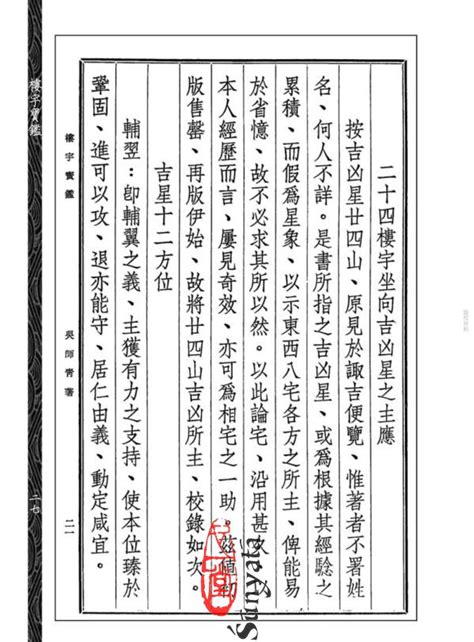 二十四樓宇坐向吉凶星之主應
按吉凶星廿四山、原見於諏吉便覽、惟著者不署姓
名、何人不詳。是書所指之吉凶星、或爲根據其經騐之
累積、而假爲星象、以示東西八宅各方之所主、俾能易
於省憶、故不必求其所以然。以此論宅、沿用甚久、以
本人經歷而言、屢見奇效、亦可爲相宅之一助。茲値初
版售罄、再版伊始、故將廿四山吉凶所主、校錄如次。
吉星十二方位
輔翌：卽輔翼之義、主獲有力之支持、使本位臻於
鞏固、進可以攻、退亦能守、居仁由義、動定咸宜。
樓宇寶鑑
吳師青著
二一
樓宇寶鑑
二七
Śūnyatā